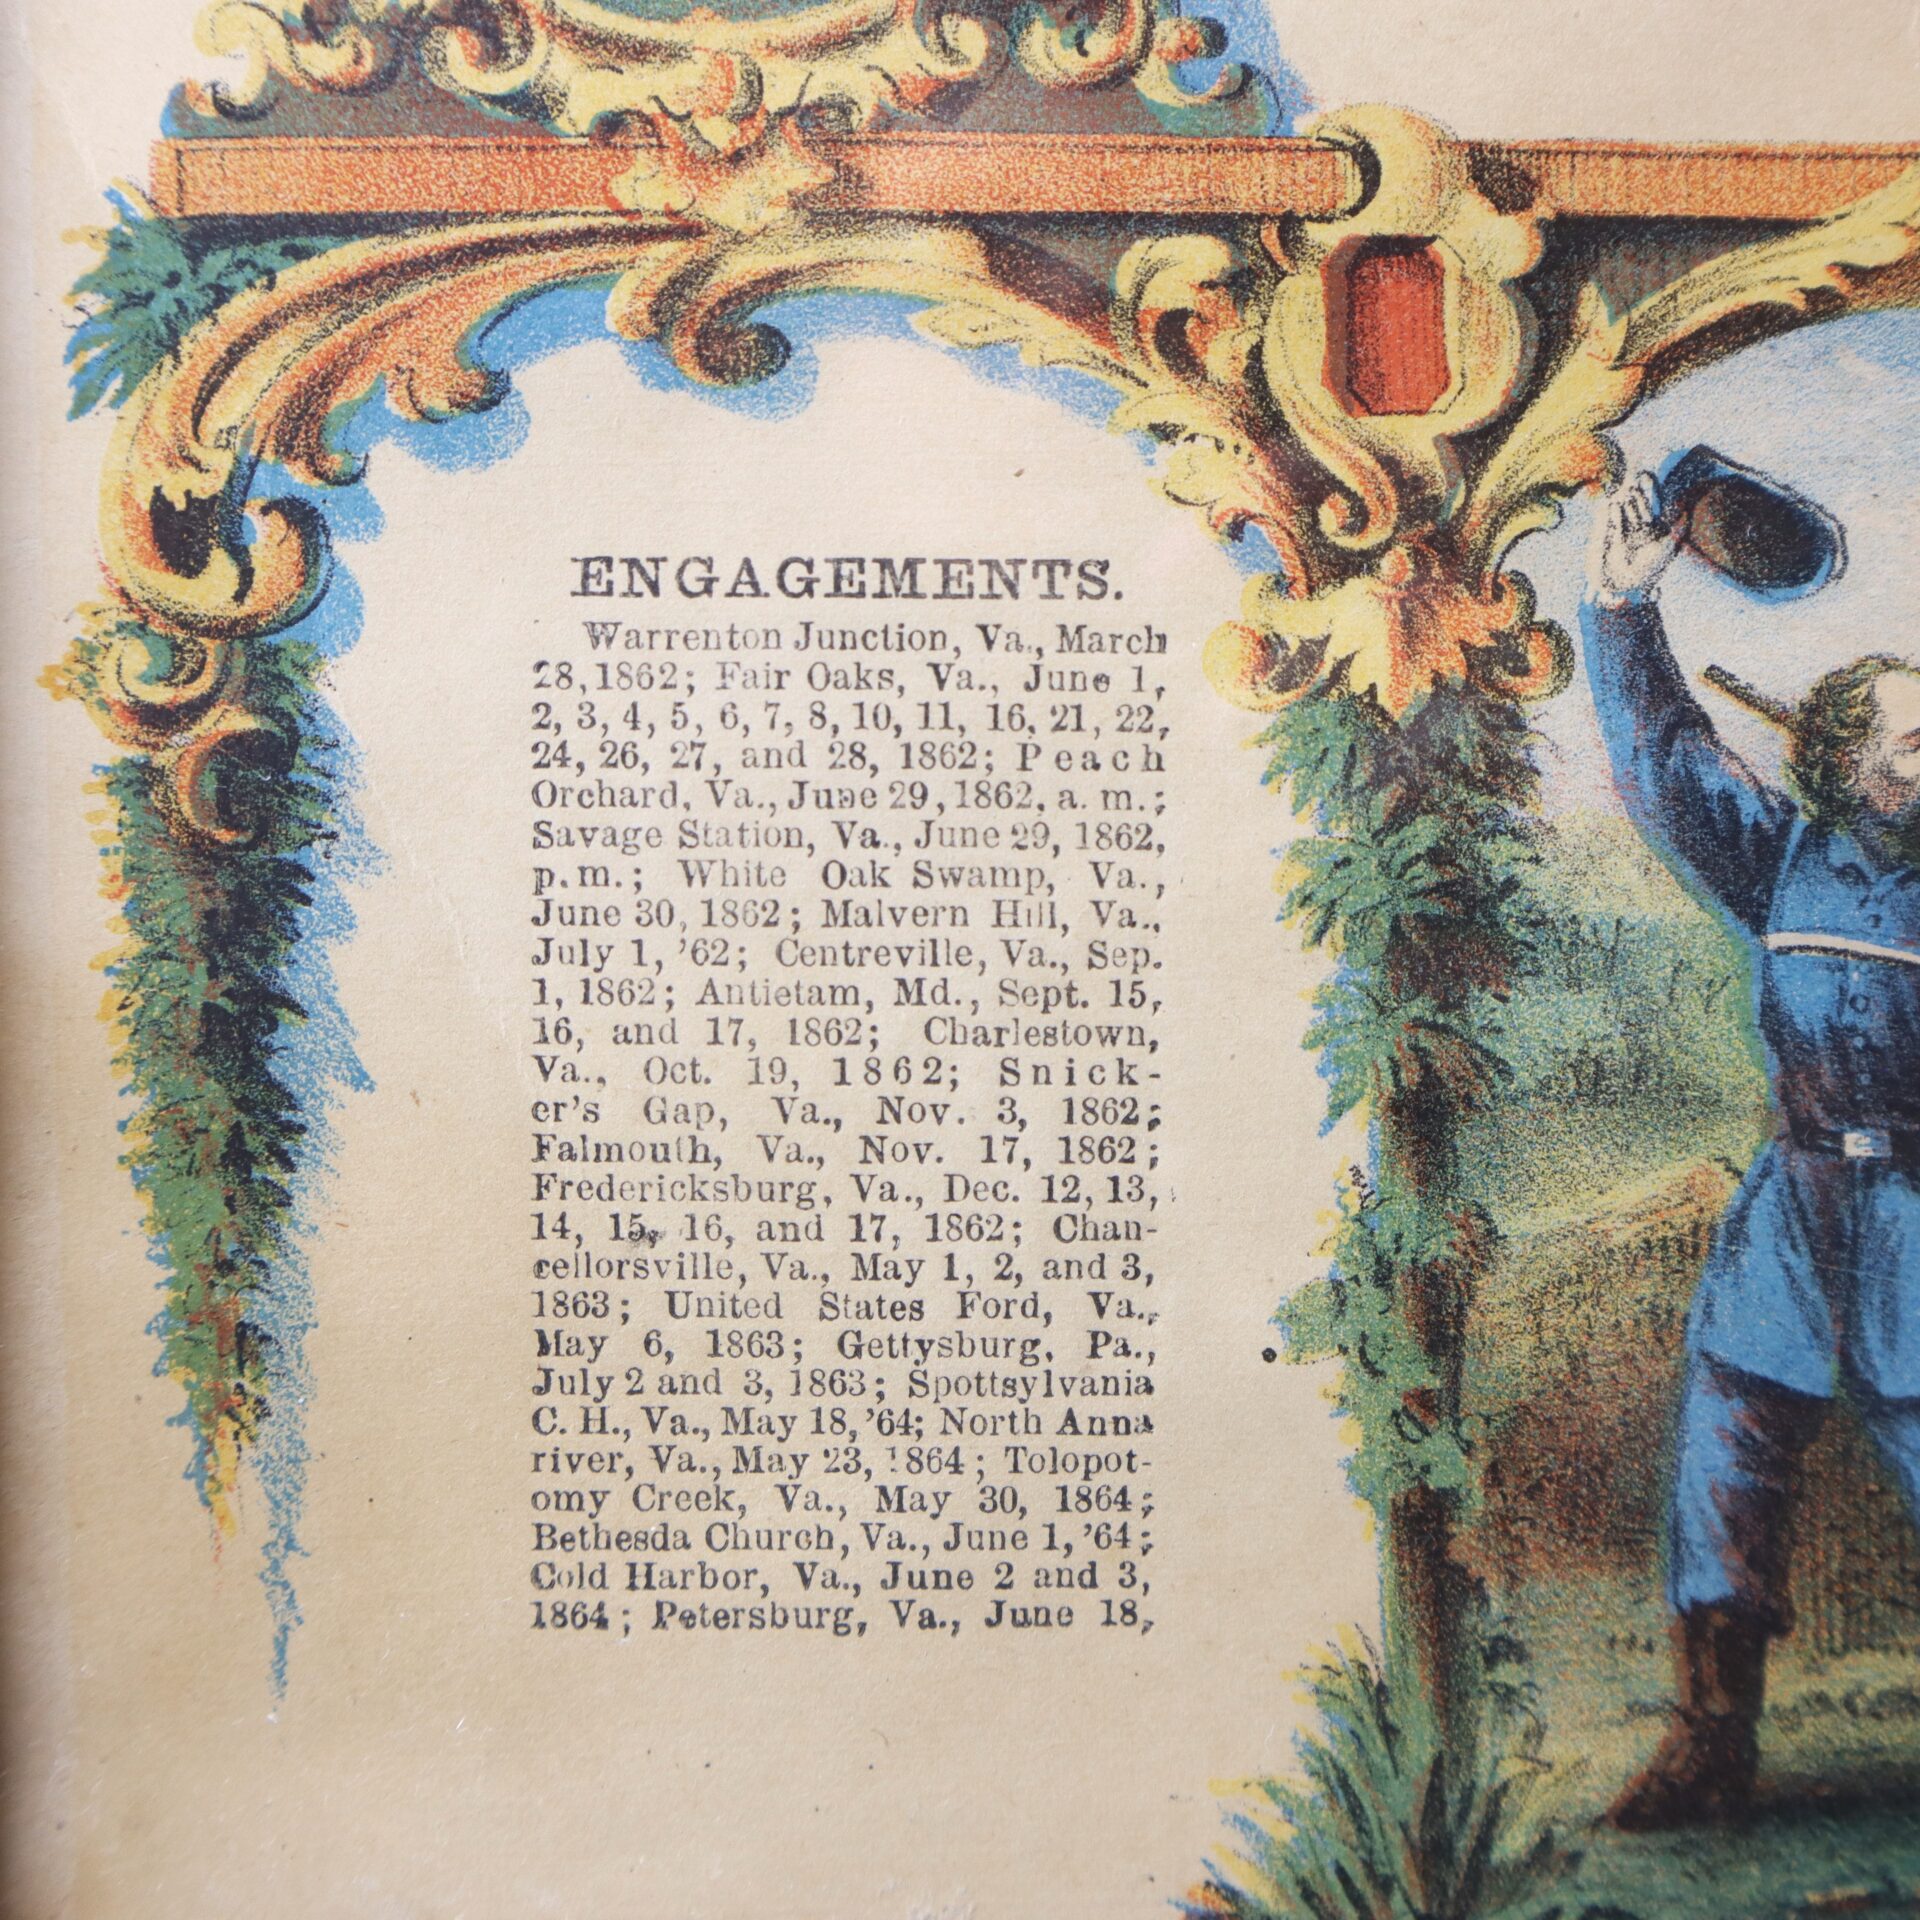 ENGAGEMENTS.
Warrenton Junction, Va., March
28, 1862; Fair Oaks, Va., June 1,
2, 3, 4, 5, 6, 7, 8, 10, 11, 16, 21, 22,
24, 26, 27, and 28, 1862; Peach
Orchard, Va., June 29, 1862, a. m.;
Savage Station, Va., June 29, 1862,
p. m.; White Oak Swamp, Va.,
June 30, 1862; Malvern Hill, Va.,
July 1, '62; Centreville, Va., Sep.
1, 1862; Antietam, Md., Sept. 15,
16, and 17, 1862; Charlestown,
Va., Oct. 19, 1862; Snick-
er's Gap, Va., Nov. 3, 1862;
Falmouth, Va., Nov. 17, 1862;
Fredericksburg, Va., Dec. 12, 13,
14, 15, 16, and 17, 1862; Chan-
cellorsville, Va., May 1, 2, and 3,
1863; United States Ford, Va.,
May 6, 1863; Gettysburg, Pa.,
July 2 and 3, 1863; Spottsylvania
C. H., Va., May 18, '64; North Anna
river, Va., May 23, 1864; Tolopot-
omy Creek, Va., May 30, 1864;
Bethesda Church, Va., June 1, '64;
Cold Harbor, Va., June 2 and 3,
1864; Petersburg, Va., June 18,